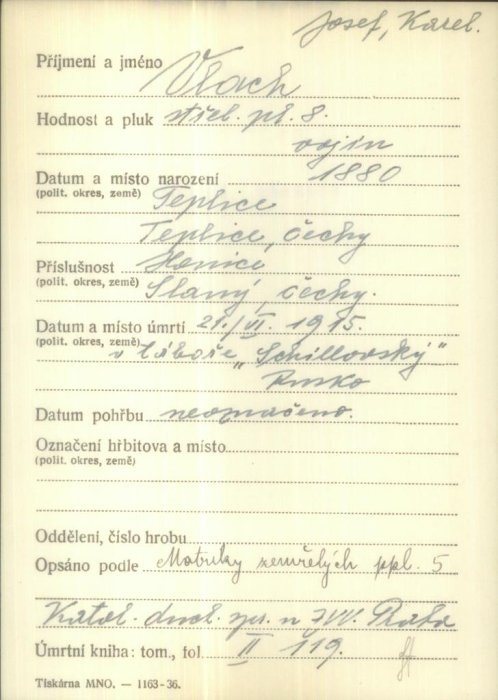 Josef, Karel.
Příjmení a jméno Vlach
Hodnost a pluk střel. pl. 8.
vojín
Datum a místo narození 1880
(polit. okres, země) Teplice
Teplice, Čechy
Příslušnost Honice,
(polit. okres, země) Slaný, Čechy.
Datum a místo úmrtí 21./VI. 1915.
(polit. okres, země) v táboře „Schillovský"
Rusko
Datum pohřbu neoznačeno.
Označení hřbitova a místo
(polit. okres, země)
Oddělení, číslo hrobu
Opsáno podle Matriky zemřelých ppl. 5
Katol. duch. spr. u ZVV. Praha
Úmrtní kniha: tom., fol. II 119.
Tiskárna MNO. — 1163-36.